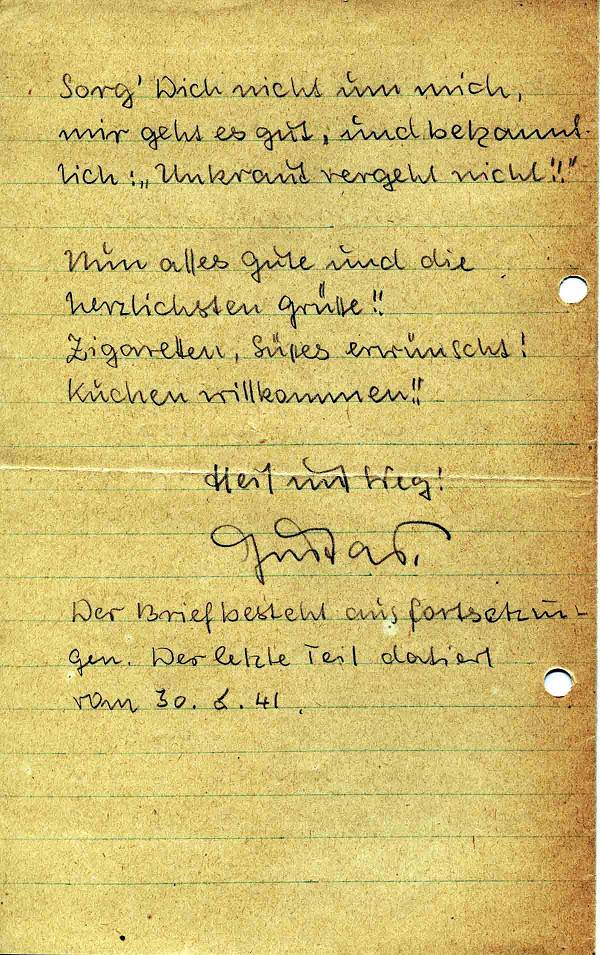 Sorg' Dich nicht um mich,
mir geht es gut, und bekannt-
lich: „Unkraut vergeht nicht!!"
Nun alles Gute und die
herzlichsten Grüße!!
Zigaretten, Süßes erwünscht!
Kuchen willkommen!!
Heil und Sieg!
Gustav.
Der Brief besteht aus Fortsetzun-
gen. Der letzte Teil datiert
vom 30. 6. 41.